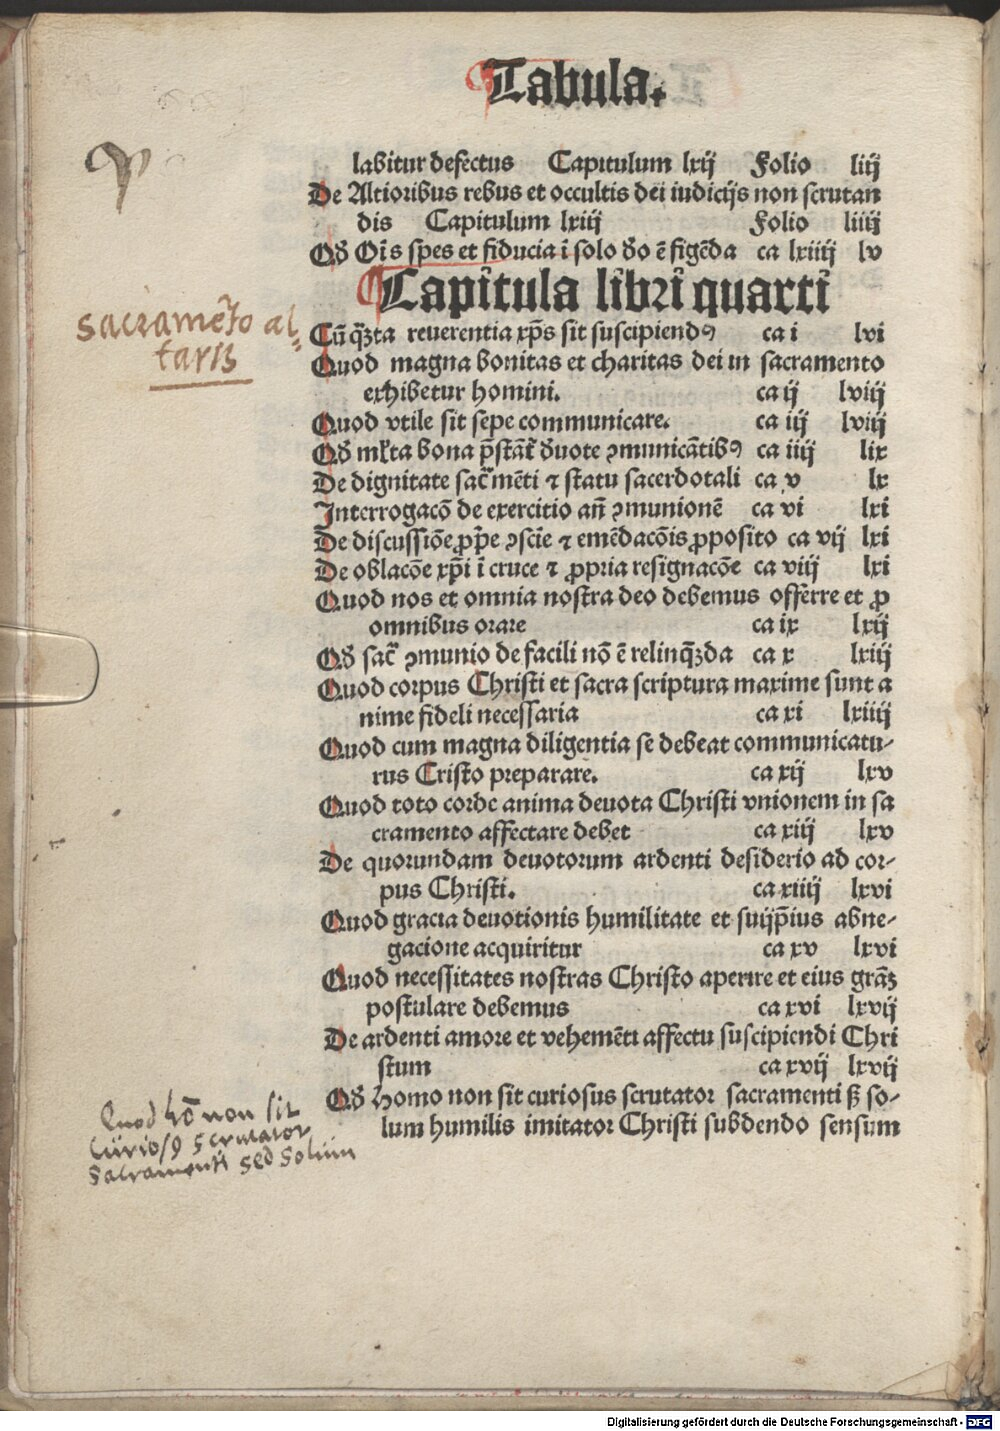 Tabula.
labitur defectus Capitulum lxij Folio liij
De Altioribus rebus et occultis dei iudicijs non scrutan
dis Capitulum lxiij Folio liiij
Qđ Oı̄s sp̄es et fiducia ī solo đo ē figēda ca lxiiij lv
Capitula libri quarti
Cū q̄ꝫta reuerentia xp̄s sit suscipiendꝰ ca i lvi
sacrame͂to al=
taris
Quod magna bonitas et charitas dei in sacramento
exhibetur homini. ca ij lviij
Quod vtile sit sepe communicare. ca iij lviij
Qđ ml̄ta bona p̄stāt̄ đuote ꝯmunicātibꝰ ca iiij lix
De dignitate sac̄mēti ⁊ statu sacerdotali ca v lx
Interrogacō de exercitio an̄ ꝯmunionē ca vi lxi
De discussiōe ꝓp̄e ꝯscīe ⁊ emēdacōis ꝓposito ca vij lxi
De oblacōe xp̄i ī cruce ⁊ ꝓpria resignacōe ca viij lxi
Quod nos et omnia nostra deo debemus offerre et ꝓ
omnibus orare ca ix lxij
Qđ sac̄ ꝯmunio de facili nō ē relinq̄ꝫda ca x lxiij
Quod corpus Christi et sacra scriptura maxime sunt a
nime fideli necessaria ca xi lxiiij
Quod cum magna diligentia se debeat communicatu-
rus Cristo preparare. ca xij lxv
Quod toto corde anima deuota Christi vnionem in sa
cramento affectare debet ca xiij lxv
De quorundam deuotorum ardenti desiderio ad cor-
pus Christi. ca xiiij lxvi
Quod gracia deuotionis humilitate et suijp̄ius abne-
gacione acquiritur ca xv lxvi
Quod necessitates nostras Christo aperire et eius grāꝫ
postulare debemus ca xvi lxvij
De ardenti amore et vehemēti affectu suscipiendi Chri
stum ca xvij lxvij
Qđ homo non sit curiosus scrutator sacramenti sꝫ so-
lum humilis imitator Christi subdendo sensum
Quod hō non sit
curiosꝰ scrutator
Sacramenti sed solum
Digitalisierung gefördert durch die Deutsche Forschungsgemeinschaft - DFG